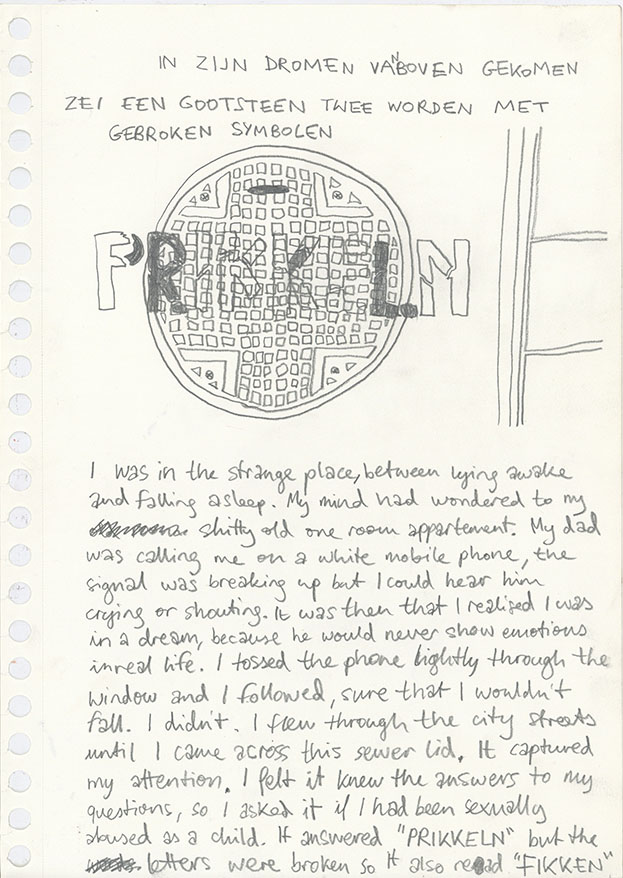 IN ZIJN DROMEN VAN BOVEN GEKOMEN
ZEI EEN GOOTSTEEN TWEE WORDEN MET
GEBROKEN SYMBOLEN
PRIKKELN
I was in the strange place, between lying awake
and falling asleep. My mind had wondered to my
shitty old one room appartement. My dad
was calling me on a white mobile phone, the
signal was breaking up but I could hear him
crying or shouting. It was then that I realised I was
in a dream, because he would never show emotions
in real life. I tossed the phone lightly through the
window and I followed, sure that I wouldn't
fall. I didn't. I flew through the city streets
until I came across this sewer lid. It captured
my attention. I felt it knew the answers to my
questions, so I asked it if I had been sexually
abused as a child. It answered "PRIKKELN" but the
letters were broken so it also read "FIKKEN"